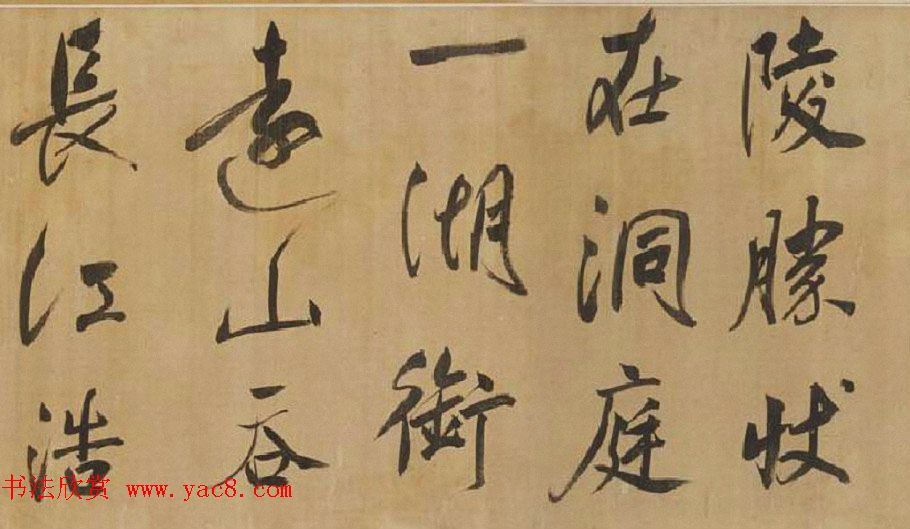 陵勝狀
在洞庭
一湖銜
遠山吞
長江浩
书法欣赏 www.yac8.com